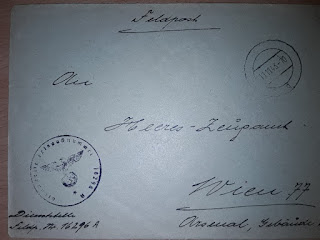 Feldpost
An
Heeres-Zeugamt
Wien 77
Arsenal, Gebäude
Dienststelle
Feldp. Nr. 16296 A